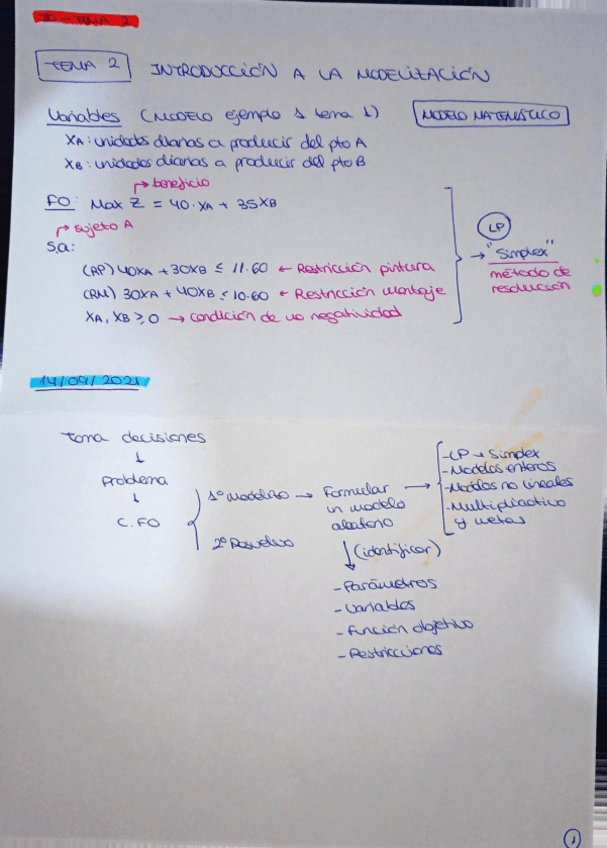 IO - TEMA 2
TEMA 2 INTRODUCCIÓN A LA MODELIZACIÓN
Variables (MODELO ejemplo 1 tema 1) MODELO MATEMÁTICO
XA: unidades diarias a producir del pto A
XB: unidades diarias a producir del pto B
→ beneficio
FO: Max Z = 40·XA + 35XB
→ sujeto A
s.a:
(RP) 40XA + 30XB ≤ 11·60 ← Restricción pintura
(RM) 30XA + 40XB ≤ 10·60 ← Restricción montaje
XA, XB ≥ 0 → condición de no negatividad
LP
→ "Simplex"
método de
resolución
14/09/2021
toma decisiones
↓
Problema
↓
C. FO
1º Modelizo → Formular
un modelo
2º Resuelvo
→ -LP → Simplex
-Modelos enteros
-Modelos no lineales
-Multiobjetivo
y metas
↓ (identificar)
-Parámetros
-Variables
-Función objetivo
-Restricciones
1